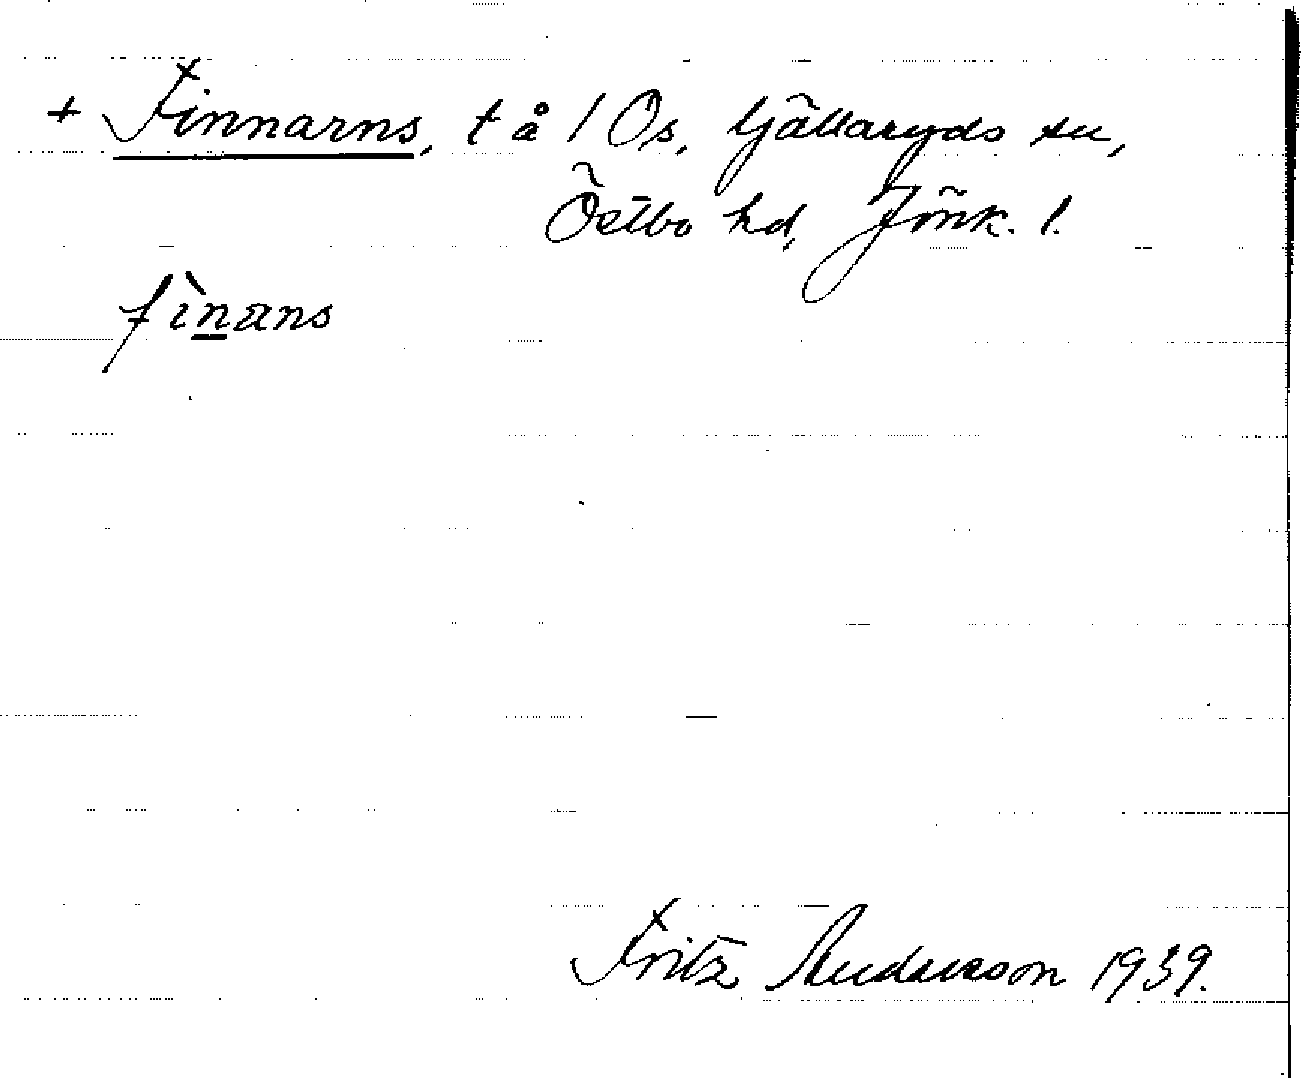 + Finnarns, t å 1 Os, Gällaryds sn,
Östbo hd, Jönk. l.
finans
Fritz Anderson 1939.